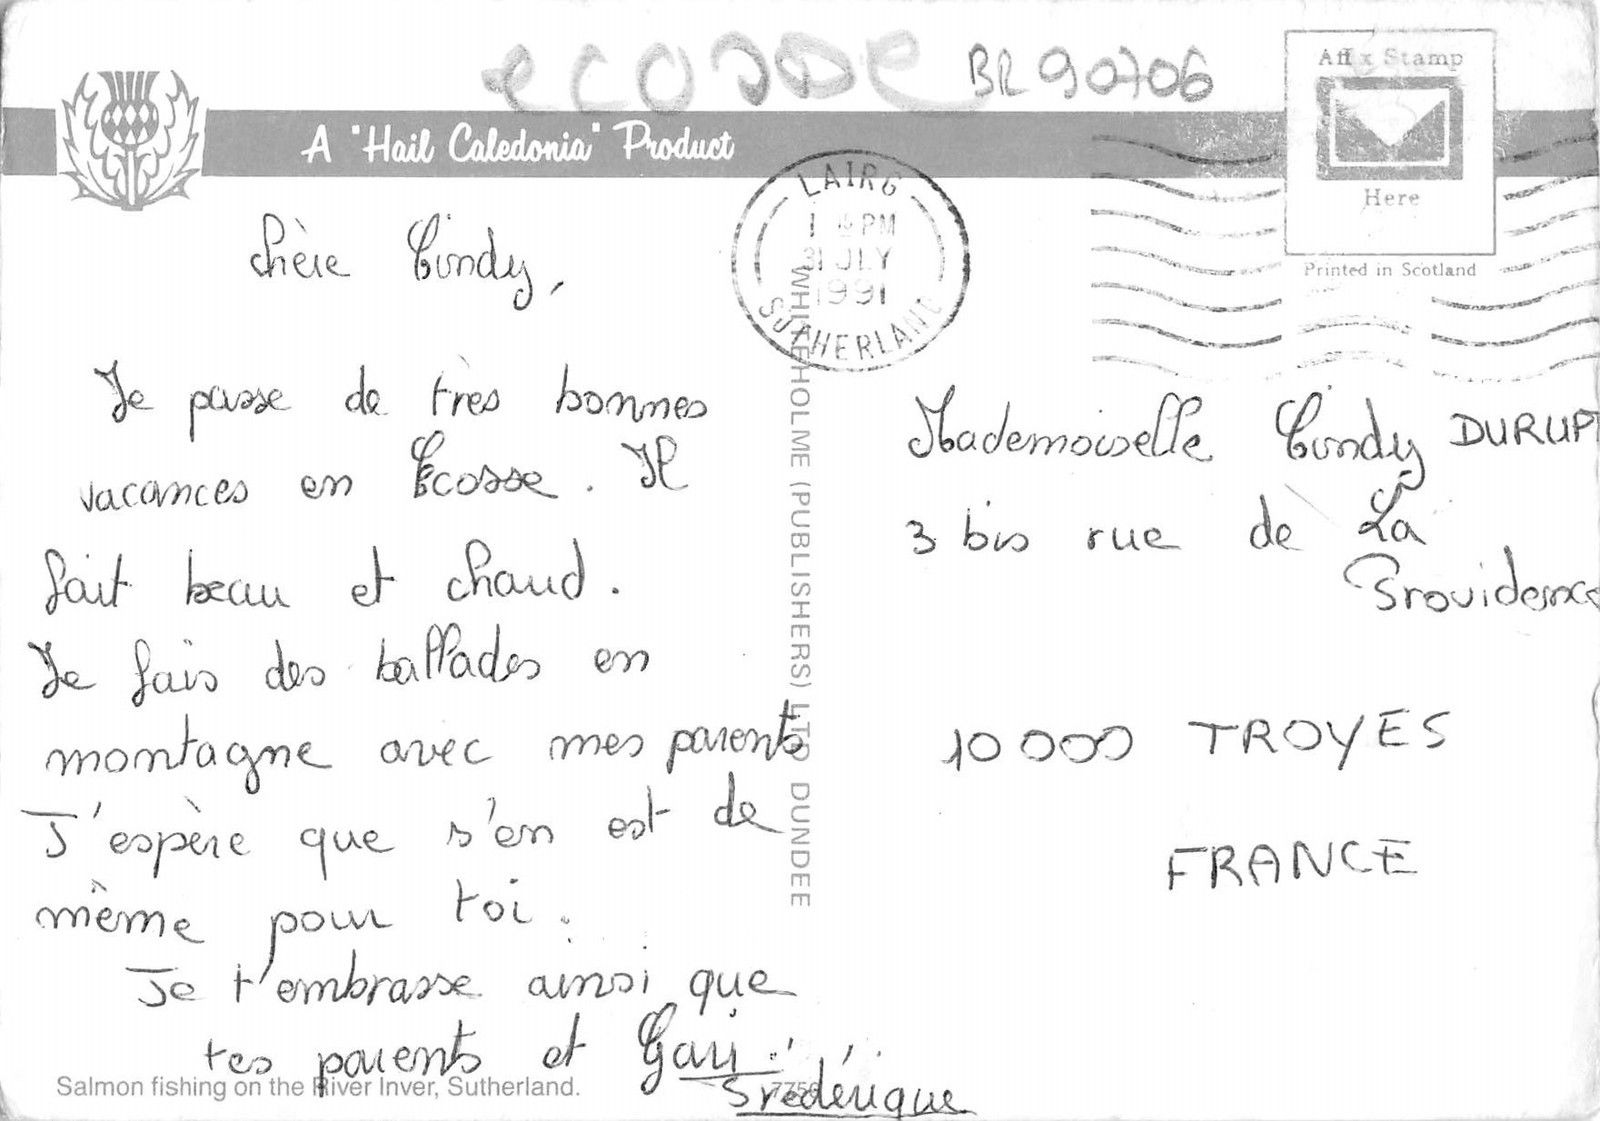 ecosse BR 90706
Affix Stamp
A "Hail Caledonia" Product
Here
Printed in Scotland
LAIRG
PM
31 JLY
1991
SUTHERLAND
Chère Cindy,
Je passe de très bonnes
vacances en Ecosse. Il
fait beau et chaud.
Je fais des ballades en
montagne avec mes parents
J'espère que s'en est de
même pour toi.
Je t'embrasse ainsi que
tes parents et Gari.
Frédérique
WHITEHOLME (PUBLISHERS) LTD DUNDEE
Mademoiselle Cindy DURUPT
3 bis rue de La
Providence
10000 TROYES
FRANCE
Salmon fishing on the River Inver, Sutherland.